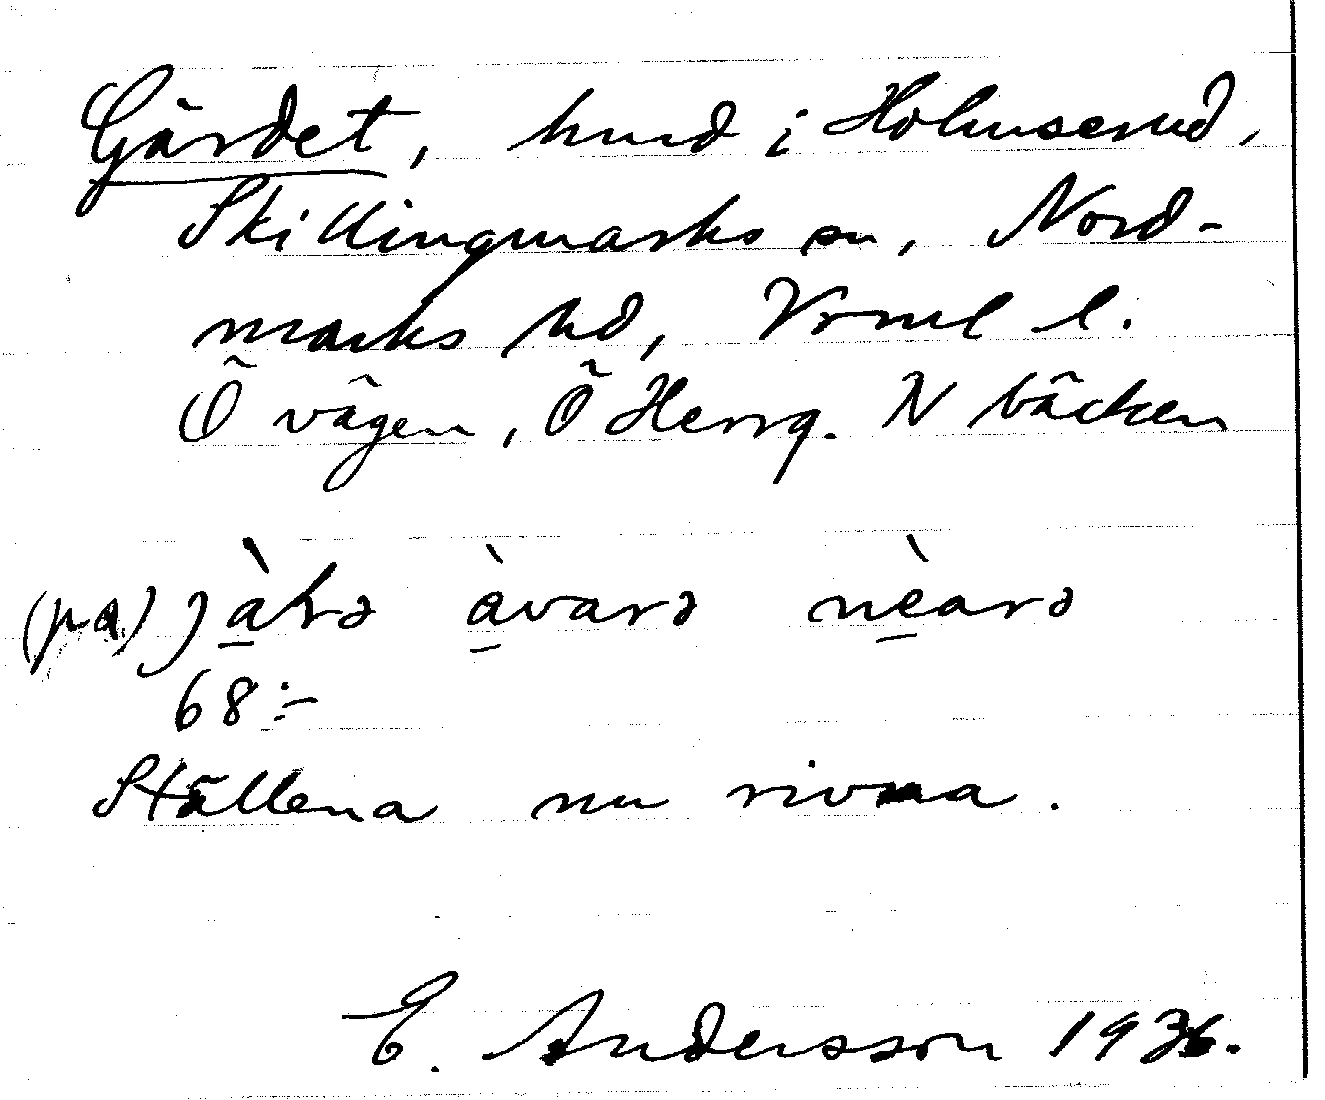 Gärdet, hmd i Holmserud,
Skillingmarks sn, Nord-
marks hd, Vrml l.
Ö vägen, Ö Herrg. N bäcken
(på) jàḷrə àvarə nèarə
68:-
Ställena nu rivna.
E. Andersson 1936.